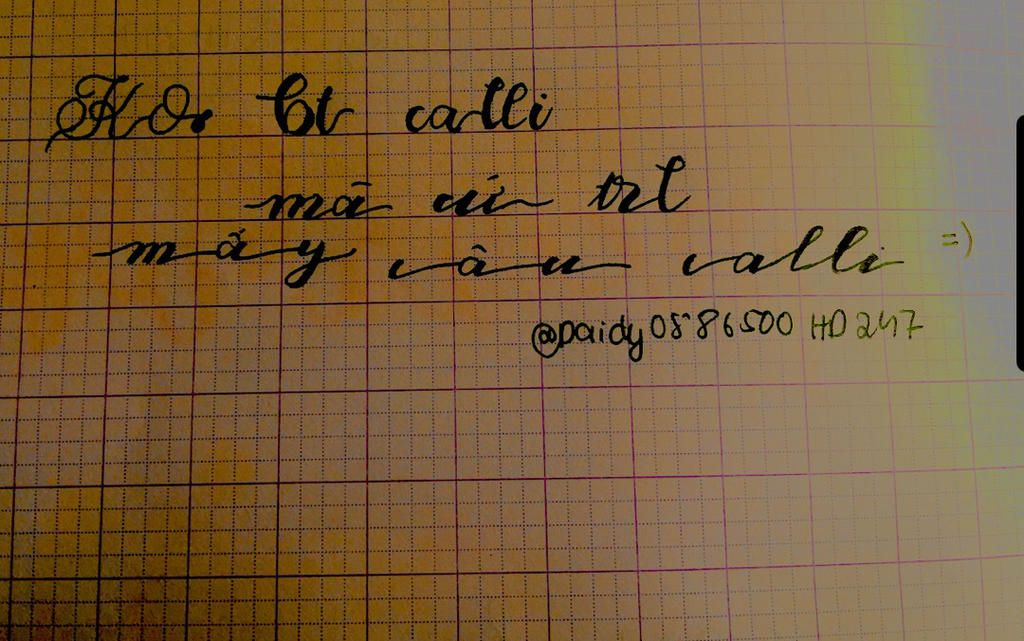 Ko bt calli
mà cứ trl
mấy câu calli =)
@paidy0586500 HD247